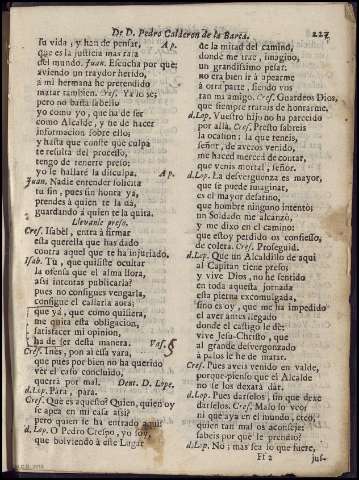 De D. Pedro Calderon de la Barca. 227
Tu vida, y han de pensar, Ap.
que es la justicia mas rara
del mundo. Juan. Escucha por què:
aviendo un traydor herido,
à mi hermana he pretendido
matar tambien. Cres. Ya lo sè;
pero no basta saberlo
yo como yo, que ha de ser
como Alcalde, y he de hacer
informacion sobre ello;
y hasta que conste que culpa
te resulta del processo,
tengo de tenerte preso;
yo le hallarè la disculpa. Ap.
Juan. Nadie entender solicita
tu fin, pues sin honra ya,
prendes à quien te la dà,
guardando à quien te la quita.
Llevanle preso.
Cres. Isabèl, entra à firmar
esta querella que has dado
contra aquel que te ha injuriado.
Isab. Tu, que quisiste ocultar
la ofensa que el alma llora,
assi intentas publicarla?
pues no consigues vengarla,
consigue el callarla aora;
que yà, que como quisiera,
me quita esta obligacion,
satisfacer mi opinion,
ha de ser desta manera. Vas.
Cres. Inès, pon ai essa vara,
que pues por bien no ha querido
ver el caso concluido,
querrà por mal. Dent. D. Lope,
d. Lop. Para, para.
Cres. Què es aquesto? Quien, quien oy
se apea en mi casa assi?
pero quien se ha entrado aqui?
d. Lop. O Pedro Crespo, yo soy,
que bolviendo à este Lugar
de la mitad del camino,
donde me trae, imagino,
un grandissimo pesar:
no era bien ir à apearme
à otra parte, siendo vos
tan mi amigo. Cres. Guardeos Dios,
que siempre tratais de honrarme.
d. Lop. Vuestro hijo no ha parecido
por allà. Cres. Presto sabreis
la ocasion: la que teneis,
señor, de averos venido,
me haced merced de contar,
que venis mortal, señor.
d. Lop. La desverguenza es mayor,
que se puede imaginar,
es el mayor desatino,
que hombre ninguno intentò:
un Soldado me alcanzò,
y me dixo en el camino:
que estoy perdido os confiesso,
de colera. Cres. Proseguid.
d. Lop. Que un Alcaldillo de aqui
al Capitan tiene preso:
y vive Dios, no he sentido
en toda aquesta jornada
esta pierna excomulgada,
sino es oy, que me ha impedido
el aver antes llegado
donde el castigo le dè:
vive Jesu-Christo, que
al grande desvergonzado
à palos le he de matar.
Cres. Pues aveis venido en valde,
porque pienso que el Alcalde
no se los dexarà dar.
d. Lop. Pues darselos, sin que dexe
darselos. Cres. Malo lo veo:
ni que aya en el mundo, creo,
quien tan mal os aconseje:
sabeis por què le prendiò?
d. Lop. No; mas sea lo que fuere,
Ff 2 jus-